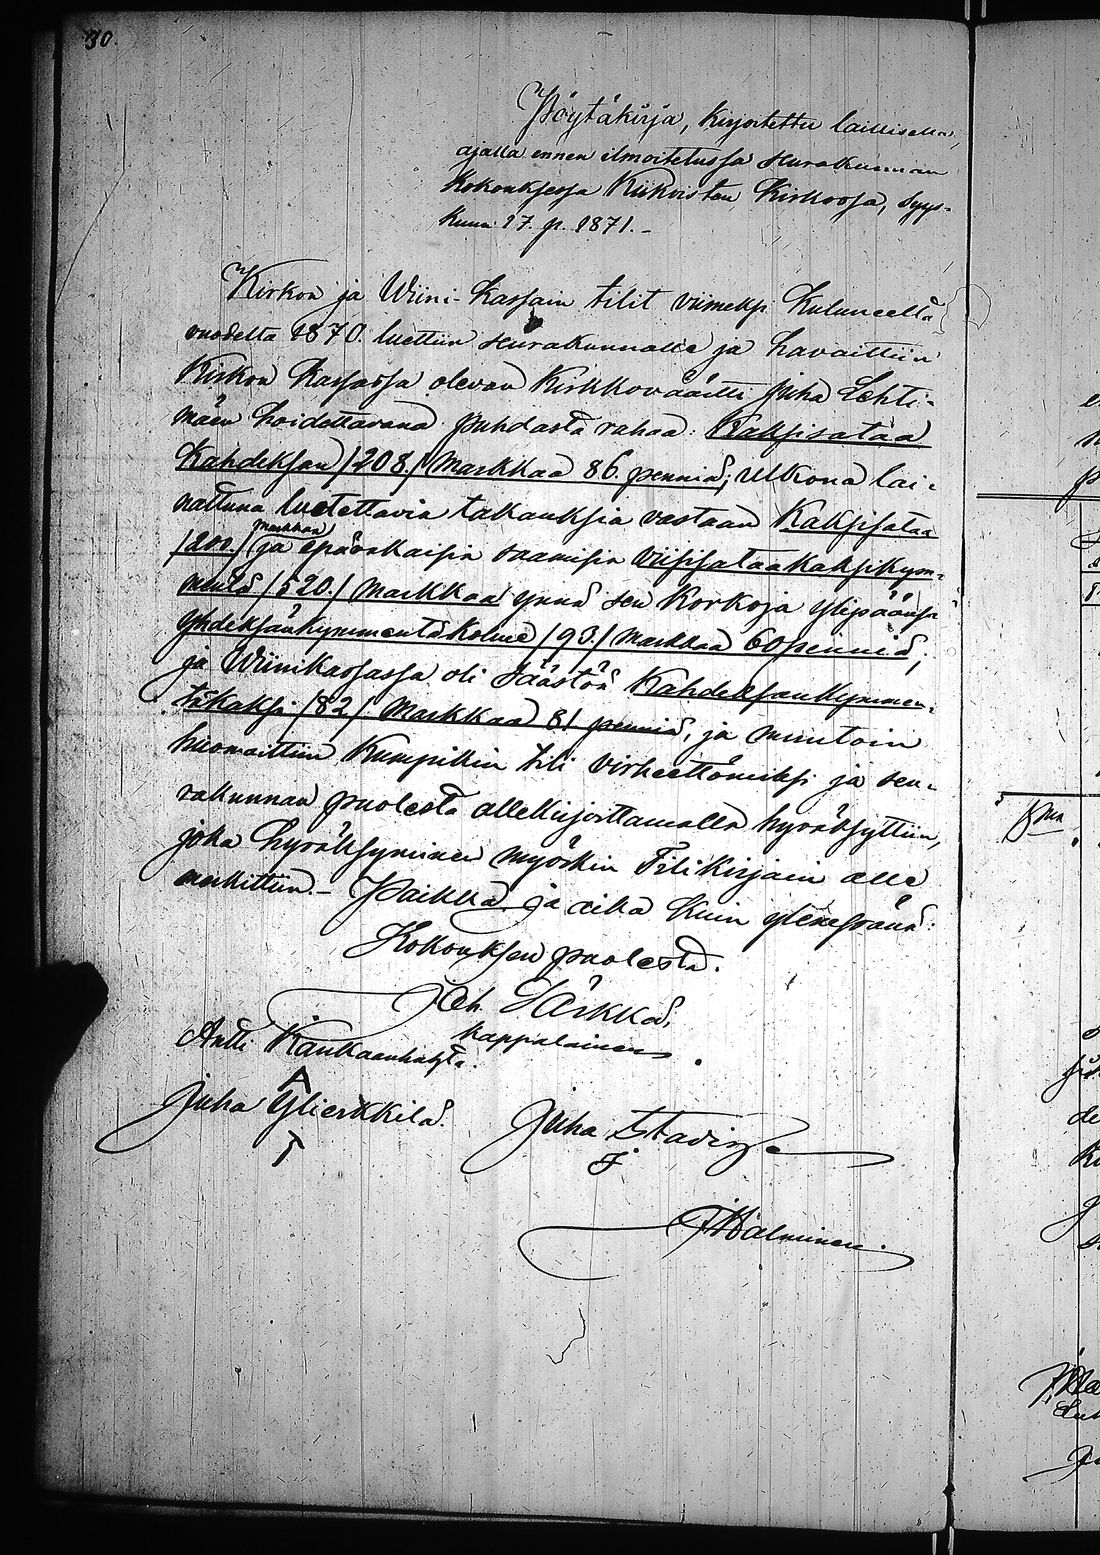 30.
Pöytäkirja, kirjoitettu laillisella
ajalla ennen ilmoitetussa seurakunnan
kokouksessa Kiikoisten kirkossa, Syys-
kuun 17. p. 1871. -
Kirkon ja Wiini-kassain tilit viimeksi kuluneelta
vuodelta 1870. luettiin seurakunnalle ja havaittiin
Kirkon kassassa olevan Kirkkoväärti Juha Lehti-
mäen hoidettavana puhdasta rahaa: Kaksisataa
kahdeksan /208./ Markkaa 86. penniä; ulkona lai-
nattuna luetettavia takauksia vastaan Kaksisataa
/200./ markkaa ja epävakaisia saamisia Viisisataakaksikym-
mentä /520./ Markkaa ynnä sen korkoja ylipäänsä
Yhdeksänkymmentäkolme /93./ Markkaa 60 penniä;
ja Wiinikassassa oli säästöä Kahdeksankymmen-
täkaksi /82/ Markkaa 81 penniä, ja muutoin
huomaittiin kumpikin tili virheettömiksi ja seu-
rakunnan puolesta allekirjoittamalla hyväksyttiin,
joka hyväksyminen myöskin Tilikirjain alle
merkittiin. - Paikka ja aika kuin ylempänä:
Kokouksen puolesta.
Joh. Särkkä,
kappalainen.
Antti Kaukaanhahta.
Juha Ylierkkilä.
Juha
F. Walminen.